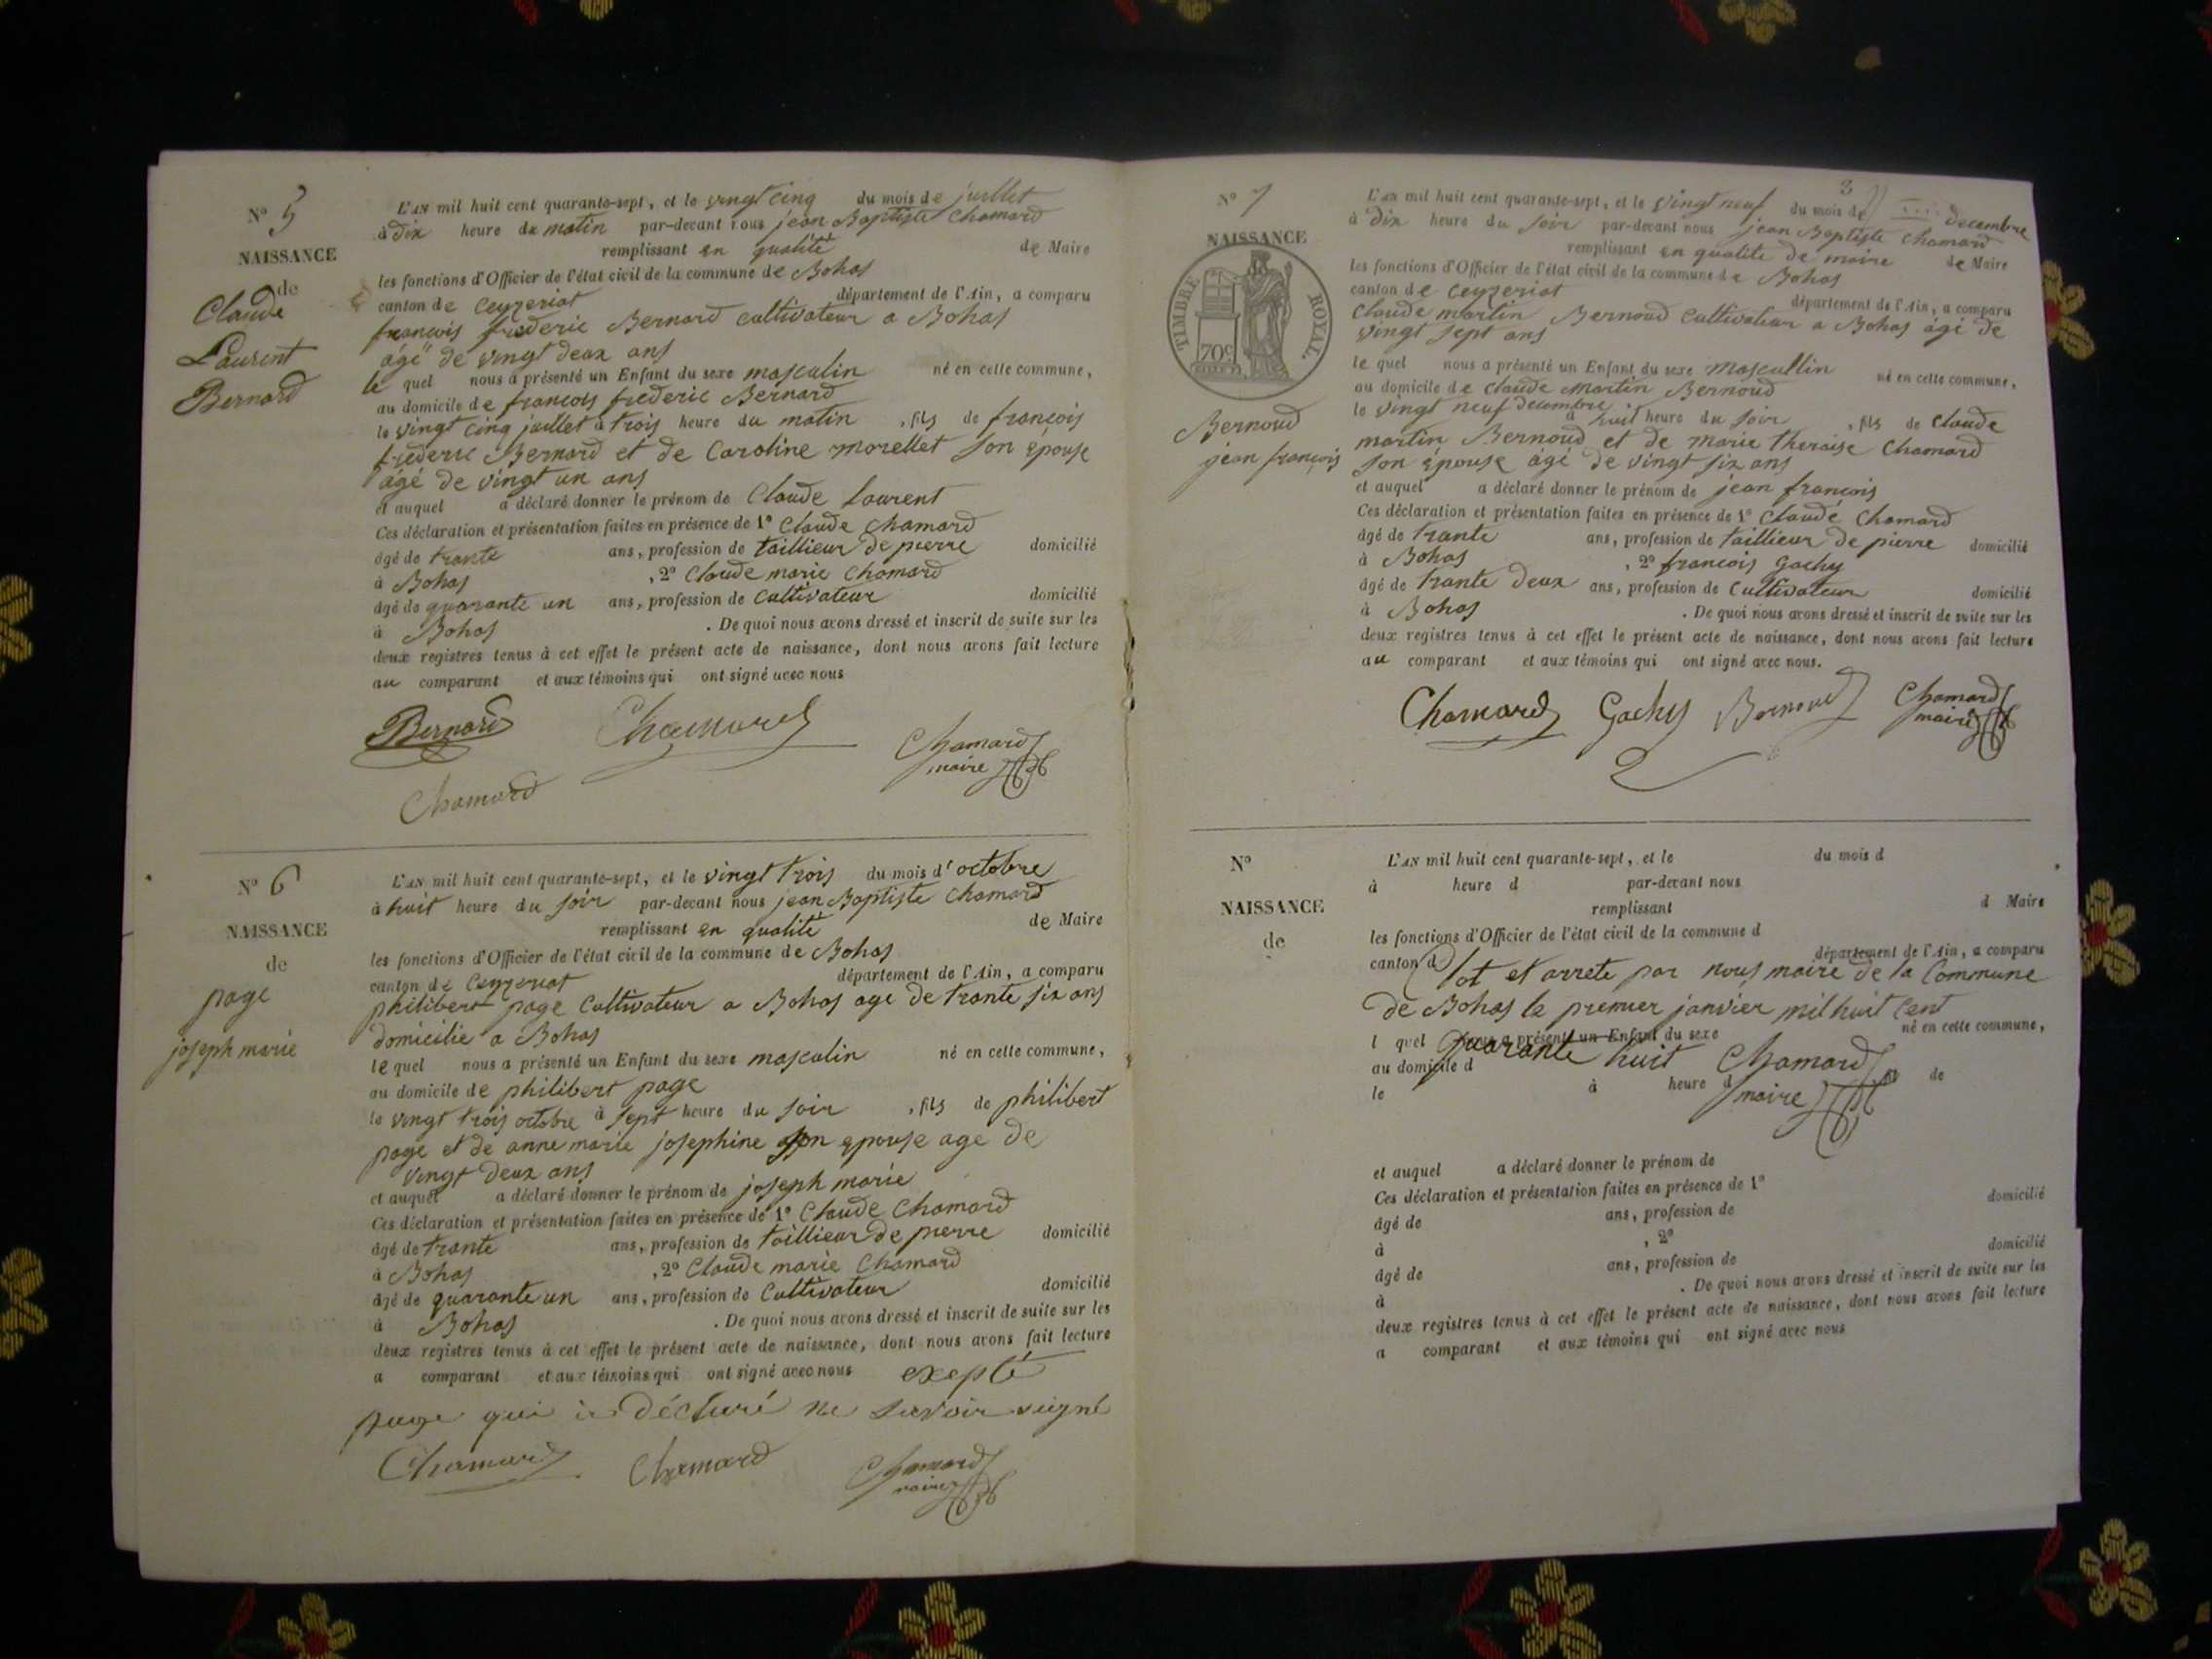 N° 5
NAISSANCE
de
Claude
Laurent
Bernard
L'AN mil huit cent quarante-sept, et le vingt cinq du mois de juillet
à dix heure du matin par-devant nous jean Baptiste Chamard
remplissant en qualité de Maire
les fonctions d'Officier de l'état civil de la commune de Bohas
canton de Ceyzeriat département de l'Ain, a comparu
francois frederic Bernard cultivateur a Bohas
âgé de vingt deux ans
le quel nous a présenté un Enfant du sexe masculin né en cette commune,
au domicile de francois frederic Bernard
le vingt cinq juillet à trois heure du matin , fils de francois
frederic Bernard et de Caroline morellet son épouse
âgé de vingt un ans
et auquel a déclaré donner le prénom de Claude Laurent
Ces déclaration et présentation faites en présence de 1° Claude Chamard
âgé de trante ans, profession de taillieur de pierre domicilié
à Bohas , 2° Claude marie Chamard
âgé de quarante un ans, profession de Cultivateur domicilié
à Bohas . De quoi nous avons dressé et inscrit de suite sur les
deux registres tenus à cet effet le présent acte de naissance, dont nous avons fait lecture
au comparant et aux témoins qui ont signé avec nous
Bernard Chamard Chamard
maire
Chamard
N° 6
NAISSANCE
de
page
joseph marie
L'AN mil huit cent quarante-sept, et le vingt trois du mois d'octobre
à huit heure du soir par-devant nous jean Baptiste Chamard
remplissant en qualité de Maire
les fonctions d'Officier de l'état civil de la commune de Bohas
canton de Ceyzeriat département de l'Ain, a comparu
philibert page Cultivateur a Bohas age de trante six ans
domicilie a Bohas
le quel nous a présenté un Enfant du sexe masculin né en cette commune,
au domicile de philibert page
le vingt trois octobre à sept heure du soir , fils de philibert
page et de anne marie josephine son epouse age de
vingt deux ans
et auquel a déclaré donner le prénom de joseph marie
Ces déclaration et présentation faites en présence de 1° Claude Chamard
âgé de trante ans, profession de taillieur de pierre domicilié
à Bohas , 2° Claude marie Chamard
âgé de quarante un ans, profession de Cultivateur domicilié
à Bohas . De quoi nous avons dressé et inscrit de suite sur les
deux registres tenus à cet effet le présent acte de naissance, dont nous avons fait lecture
a comparant et aux témoins qui ont signé avec nous exepté
page qui a déclaré ne savoir signé
Chamard Chamard Chamard
maire
3
N° 7
NAISSANCE
TIMBRE ROYAL.
70c
Bernoud
jean françois
L'AN mil huit cent quarante-sept, et le vingt neuf du mois de decembre
à dix heure du soir par-devant nous jean Baptiste Chamard
remplissant en qualité de maire de Maire
les fonctions d'Officier de l'état civil de la commune de Bohas
canton de Ceyzeriat département de l'Ain, a comparu
Claude martin Bernoud Cultivateur a Bohas âgé de
vingt sept ans
le quel nous a présenté un Enfant du sexe mascullin né en cette commune,
au domicile de claude martin Bernoud
le vingt neuf decembre à huit heure du soir , fils de Claude
martin Bernoud et de marie theraise Chamard
son épouse âgé de vingt six ans
et auquel a déclaré donner le prénom de jean francois
Ces déclaration et présentation faites en présence de 1° Claude Chamard
âgé de trante ans, profession de taillieur de pierre domicilié
à Bohas , 2° francois Gachy
âgé de trante deux ans, profession de Cultivateur domicilié
à Bohas . De quoi nous avons dressé et inscrit de suite sur les
deux registres tenus à cet effet le présent acte de naissance, dont nous avons fait lecture
au comparant et aux témoins qui ont signé avec nous.
Chamard Gachy Bernoud Chamard
maire
N°
NAISSANCE
de
L'AN mil huit cent quarante-sept, et le du mois d
à heure d par-devant nous
remplissant d Maire
les fonctions d'Officier de l'état civil de la commune d
canton d département de l'Ain, a comparu
Clot et arrete par nous maire de la Commune
de Bohas le premier janvier mil huit Cent
l quel nous a présenté un Enfant du sexe né en cette commune,
quarante huit Chamard
au domicile d
maire
le à heure d de
et auquel a déclaré donner le prénom de
Ces déclaration et présentation faites en présence de 1°
âgé de ans, profession de domicilié
à , 2°
âgé de ans, profession de domicilié
à . De quoi nous avons dressé et inscrit de suite sur les
deux registres tenus à cet effet le présent acte de naissance, dont nous avons fait lecture
a comparant et aux témoins qui ont signé avec nous